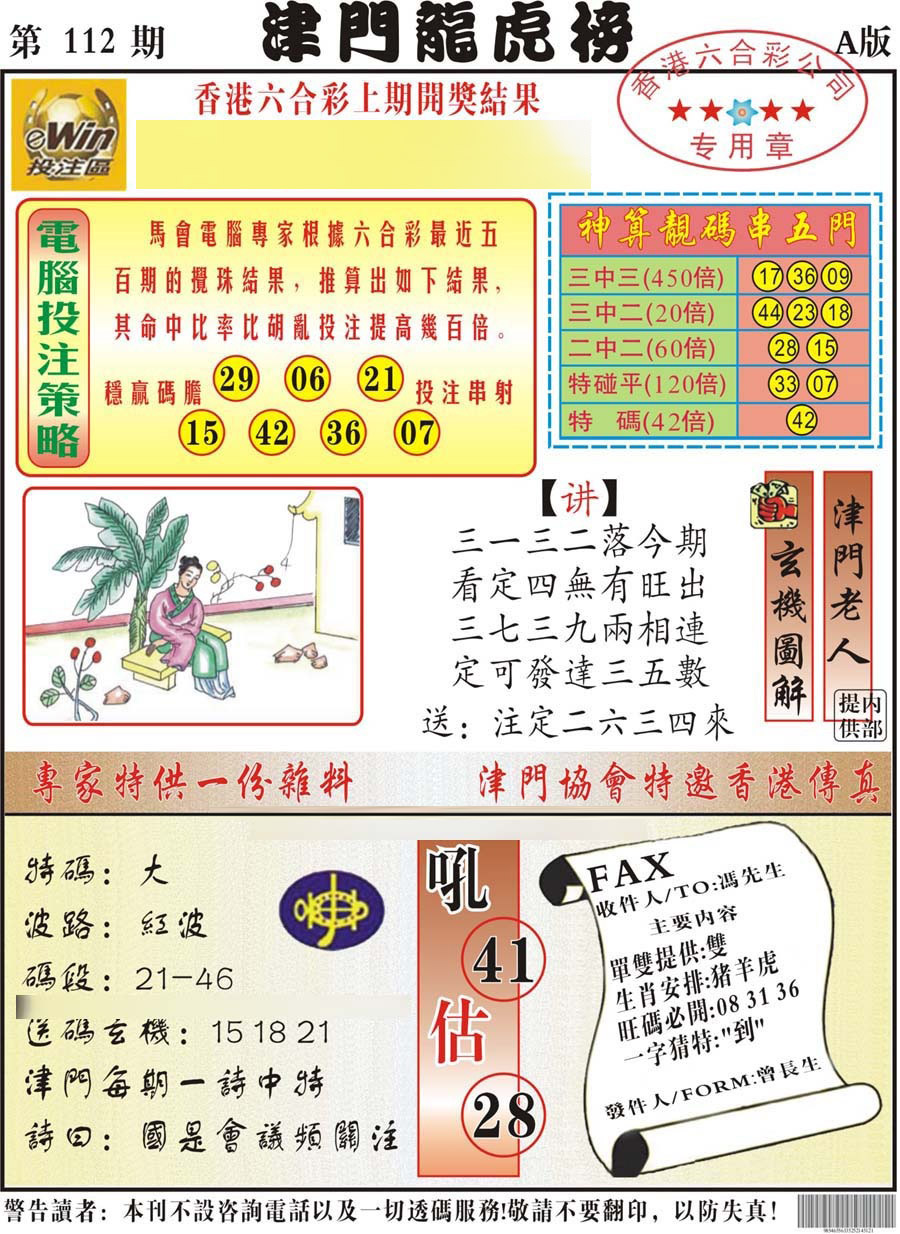 第 112 期
津門龍虎榜
A版
eWin
投注區
香港六合彩上期開獎結果
香港六合彩公司
专用章
電腦投注策略
馬會電腦專家根據六合彩最近五
百期的攪珠結果，推算出如下結果，
其命中比率比胡亂投注提高幾百倍。
穩贏碼膽 29 06 21 投注串射
15 42 36 07
神算靚碼串五門
三中三(450倍) 17 36 09
三中二(20倍) 44 23 18
二中二(60倍) 28 15
特碰平(120倍) 33 07
特　碼(42倍) 42
【讲】
三一三二落今期
看定四無有旺出
三七三九兩相連
定可發達三五數
送：注定二六三四來
玄機圖解
津門老人
内部
提供
專家特供一份雜料
津門協會特邀香港傳真
特碼：大
波路：紅波
碼段：21-46
送碼玄機：15 18 21
津門每期一詩中特
詩曰：國是會議頻關注
吼
41
估
28
FAX
收件人/TO:馮先生
主要内容
單雙提供:雙
生肖安排:猪羊虎
旺碼必開:08 31 36
一字猜特:"到"
發件人/FORM:曾長生
警告讀者：本刊不設咨詢電話以及一切透碼服務!敬請不要翻印，以防失真!